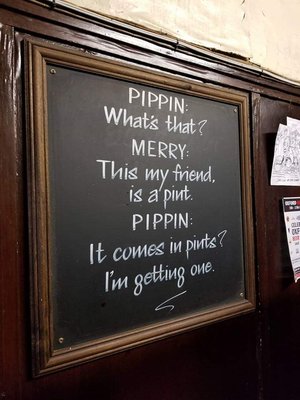 PIPPIN:
What's that?
MERRY:
This my friend,
is a pint.
PIPPIN:
It comes in pints?
I'm getting one.